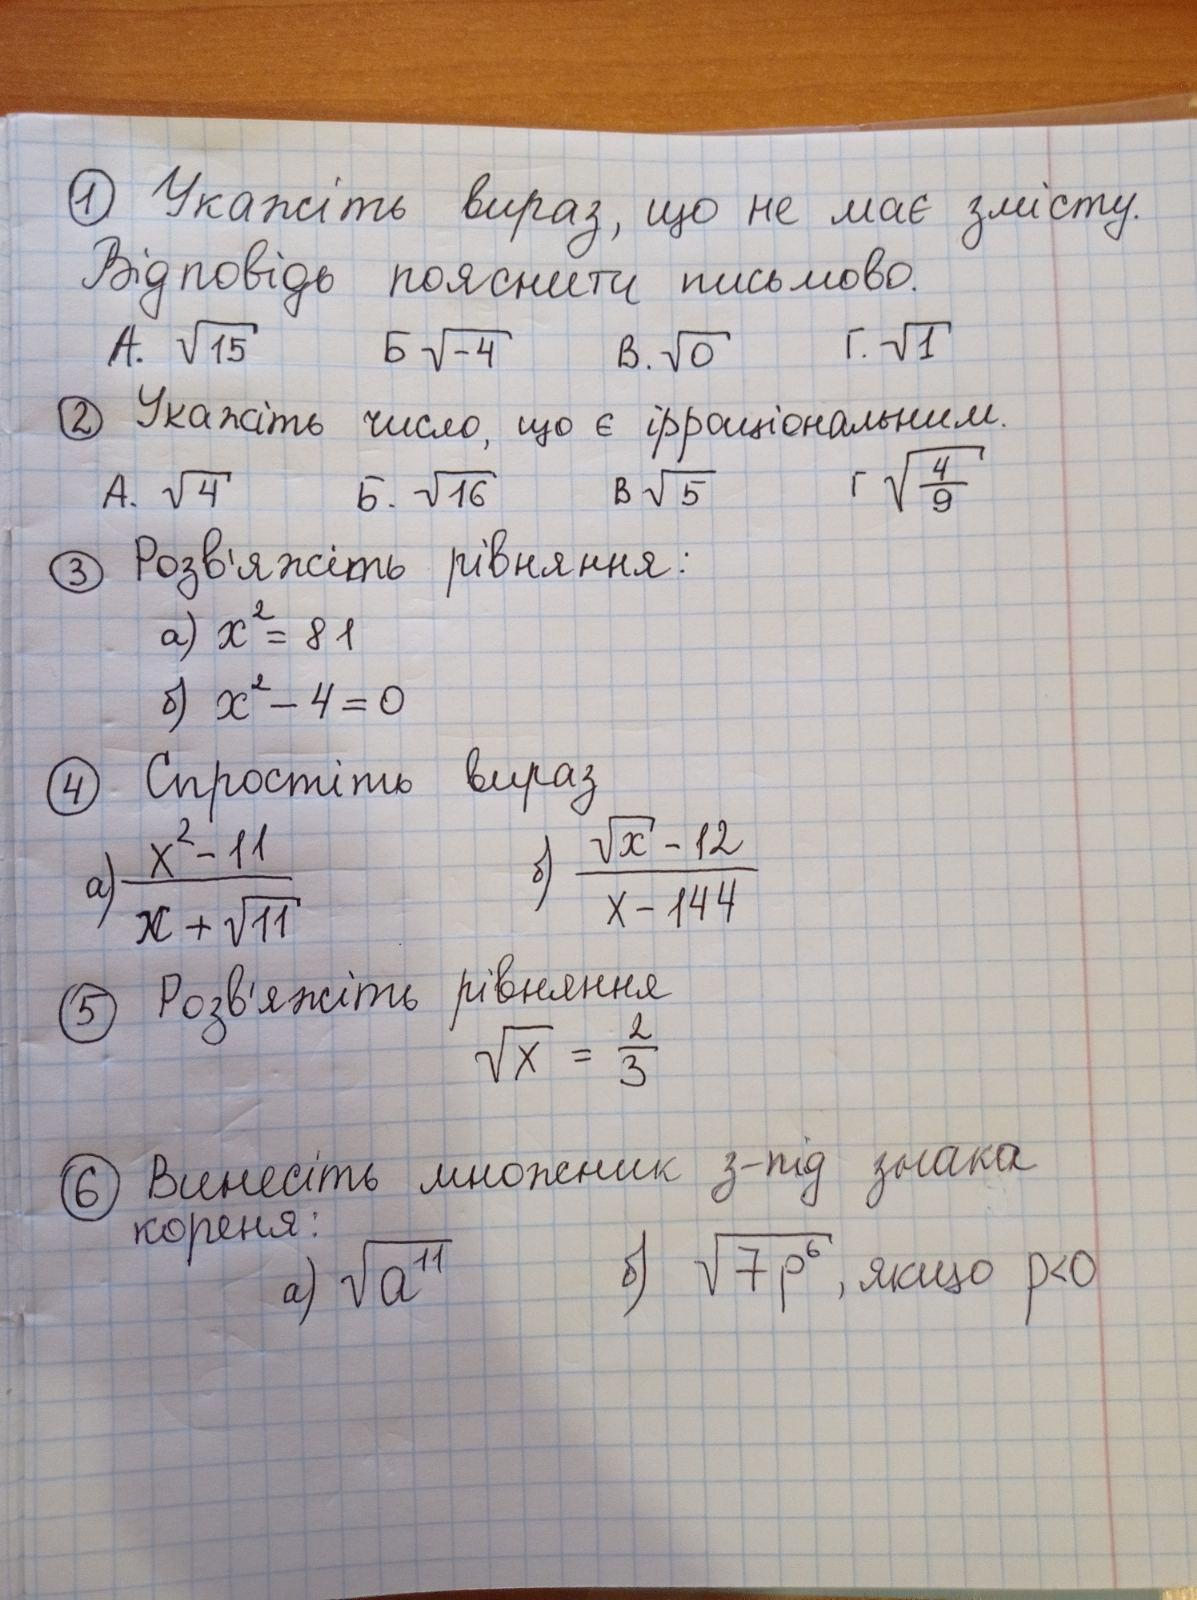 ① Укажіть вираз, що не має змісту.
Відповідь пояснити письмово.
А. √15 Б √-4 В. √0 Г. √1
② Укажіть число, що є ірраціональним.
А. √4 Б. √16 В √5 Г √(4/9)
③ Розв'яжіть рівняння:
а) x² = 81
б) x² - 4 = 0
④ Спростіть вираз
а) (x² - 11)/(x + √11) б) (√x - 12)/(x - 144)
⑤ Розв'яжіть рівняння
√x = 2/3
⑥ Винесіть множник з-під знака
кореня:
а) √a¹¹ б) √7p⁶, якщо p<0